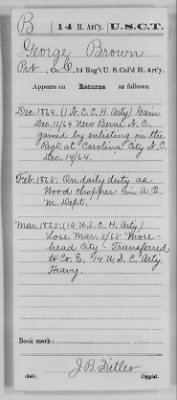 B 14 H. Art'y. U.S.C.T.
George Brown
Pvt, Co. 14 Reg't U. S. Col'd H. Art'y.
Appears on Returns as follows:
Dec. 1864. (1 N.C.C.H. Arty) Gain
Dec. 14/64 New Berne N.C.
gained by enlisting in the
Regt at Carolina City N.C.
Dec. 14/64.
Feb. 1865. On daily duty as
Wood chopper in a Q.
M. Dept.
Mar. 1865. (14 U.S.C.H. Arty)
Loss Mar. 5/65 More-
head City - Transferred
to Co. E, 14 U.S.C. Arty
Heavy.
Book mark:
J. B. Fitler
(546) Copyist.